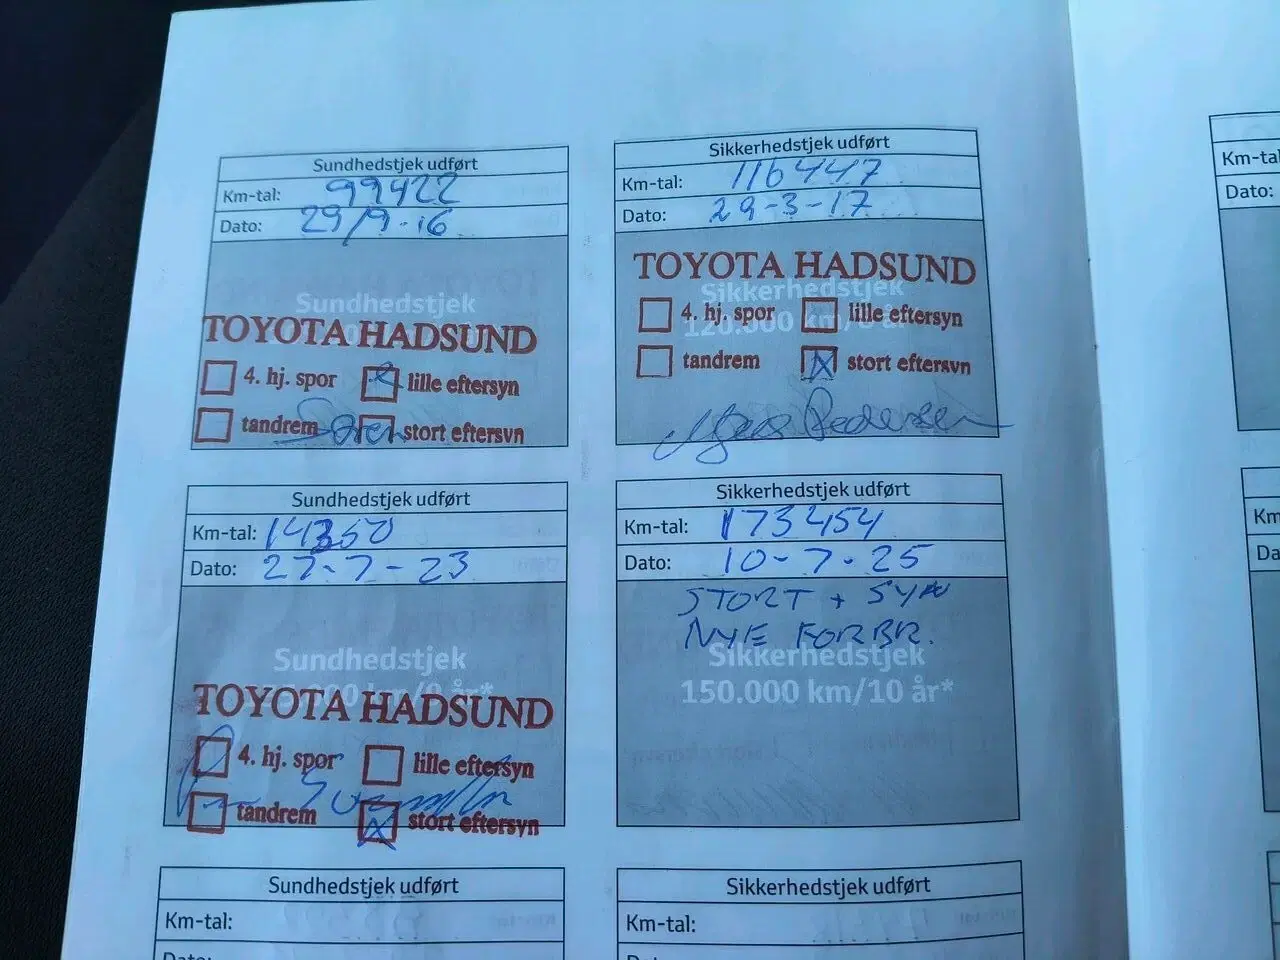 Sundhedstjek udført
Km-tal: 99422
Dato: 29/9-16
Sundhedstjek
TOYOTA HADSUND
4. hj. spor lille eftersyn
tandrem stort eftersyn
Sikkerhedstjek udført
Km-tal: 116447
Dato: 29-3-17
TOYOTA HADSUND
Sikkerhedstjek
4. hj. spor lille eftersyn
120.000 km/8 år
tandrem stort eftersyn
Pedersen
Sundhedstjek udført
Km-tal:
Dato: 27-7-23
Sundhedstjek
TOYOTA HADSUND
4. hj. spor lille eftersyn
tandrem stort eftersyn
Sikkerhedstjek udført
Km-tal: 173454
Dato: 10-7-25
STORT + SYN
NYE FORBR.
Sikkerhedstjek
150.000 km/10 år*
Sundhedstjek udført
Km-tal:
Dato:
Sikkerhedstjek udført
Km-tal:
Km-tal
Dato:
Km
Da